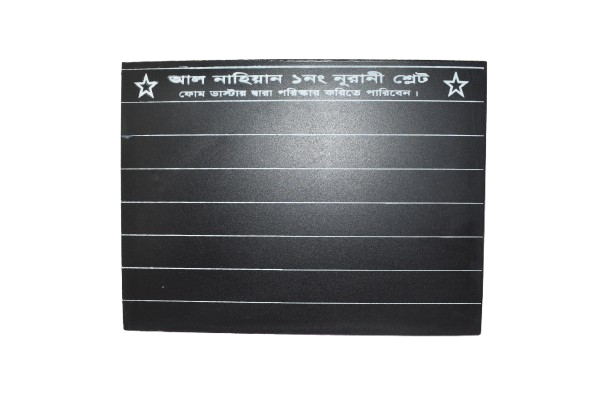 আল নাহিয়ান ১নং নূরানী শ্লেট
ফোম ডাস্টার দ্বারা পরিস্কার করিতে পারিবেন।